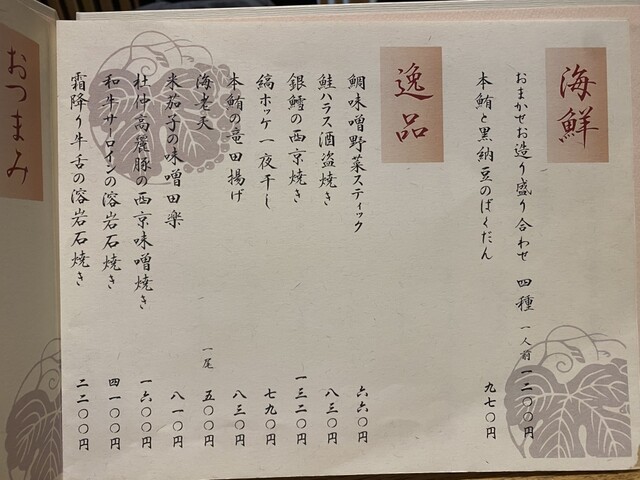 海鮮
おまかせお造り盛り合わせ 四種 一人前 一二〇〇円
本鮪と黒納豆のばくだん 九七〇円
逸品
鯛味噌野菜スティック 六六〇円
鮭ハラス酒盗焼き 八三〇円
銀鱈の西京焼き 一三二〇円
縞ホッケ一夜干し 七九〇円
本鮪の竜田揚げ 八三〇円
海老天 一尾 五〇〇円
米茄子の味噌田楽 八一〇円
杜仲高麗豚の西京味噌焼き 一六〇〇円
和牛サーロインの溶岩石焼き 四一〇〇円
霜降り牛舌の溶岩石焼き 二二〇〇円
おつまみ